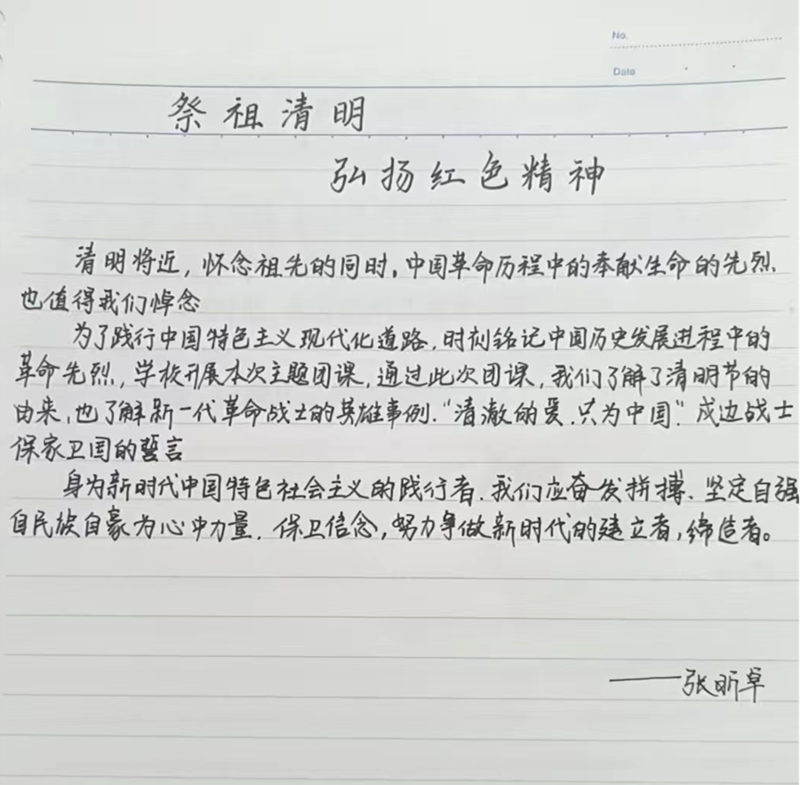 No.
Date
祭祖清明
弘扬红色精神
清明将近，怀念祖先的同时，中国革命历程中的奉献生命的先烈
也值得我们悼念
为了践行中国特色主义现代化道路，时刻铭记中国历史发展进程中的
革命先烈，学校开展本次主题团课，通过此次团课，我们了解了清明节的
由来，也了解新一代革命战士的英雄事例."清澈的爱.只为中国."戍边战士
保家卫国的誓言
身为新时代中国特色社会主义的践行者.我们应奋发拼搏、坚定自强
自民族自豪为心中力量.保卫信念,努力争做新时代的建立者,缔造者。
——张昕卓